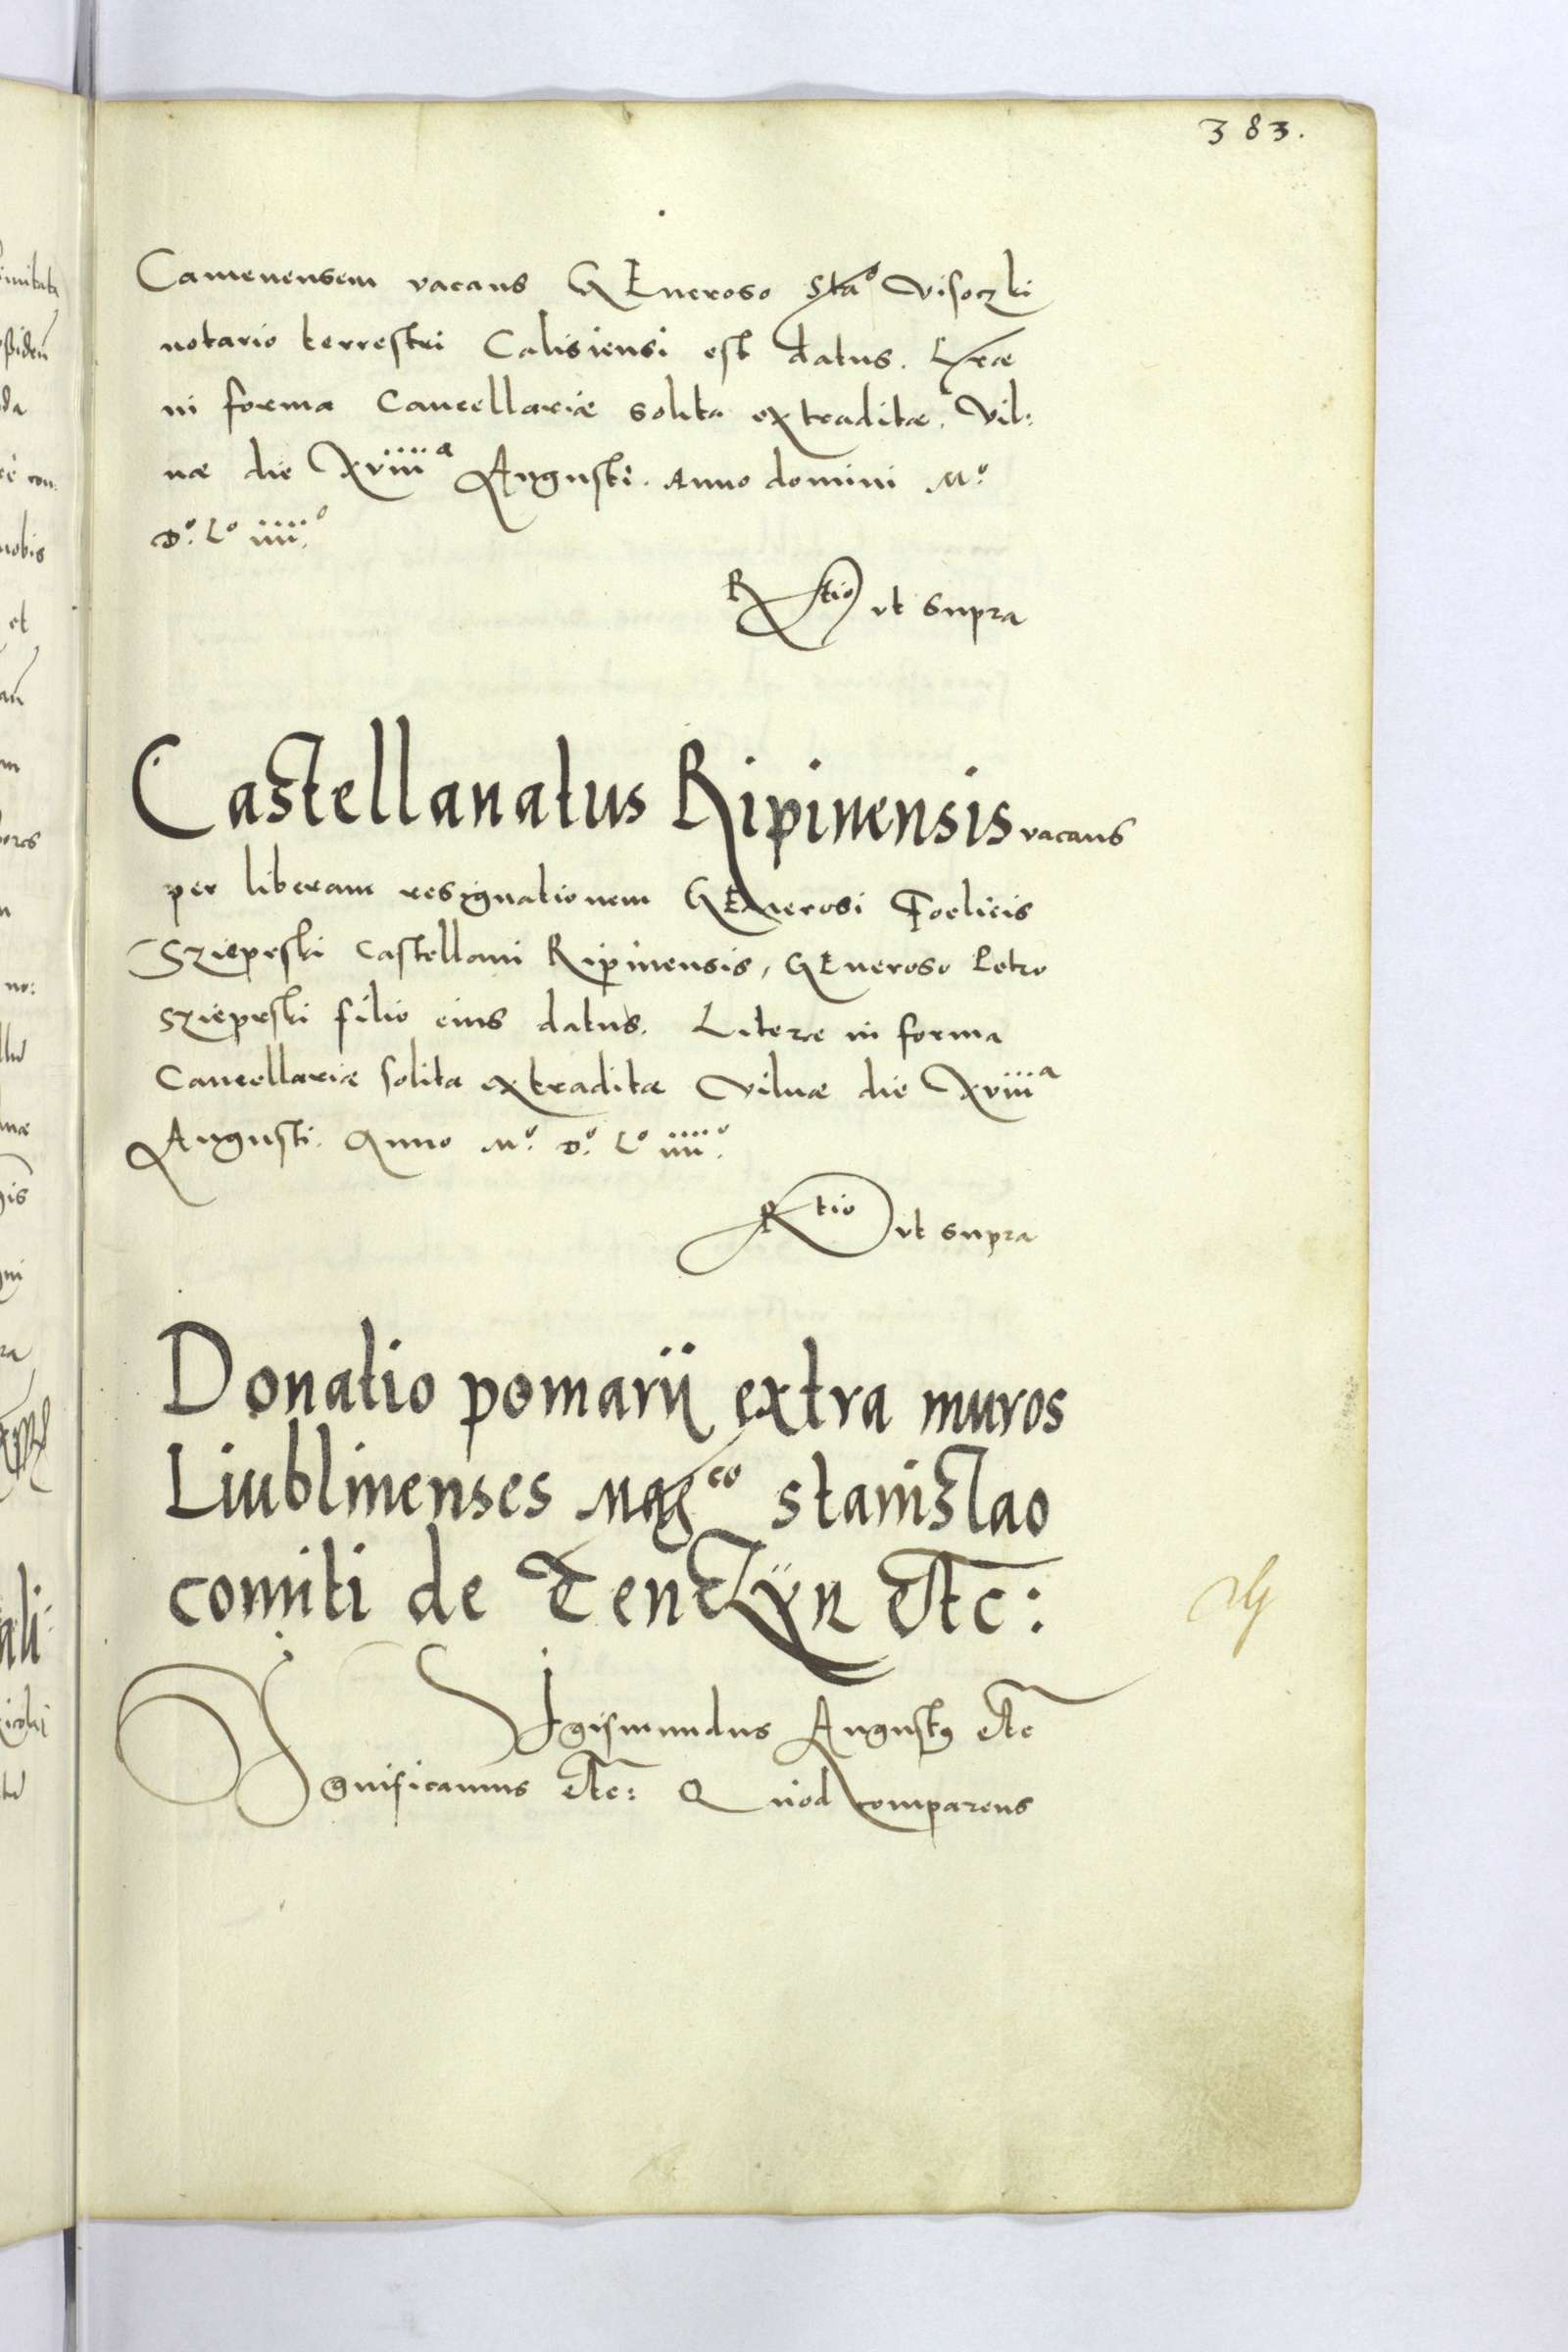 383.
Camenensem vacans GEneroso Sta° Visoczki
notario terrestri Calisiensi est datus. Lræ
in forma Cancellariæ solita extraditæ. Vil:
næ die Xviiiiª Augusti. Anno domini M°.
D°. L° iiii°.
Rtio ut supra
Castellanatus Ripinensis vacans
per liberam resignationem GEnerosi Foelicis
Sziepeski Castellani Ripinensis, GEneroso Petro
Sziepeski filio eius datus. Literæ in forma
Cancellariæ solita extraditæ Vilnæ die Xviiiª
Augusti. Anno M°. D°. L° iiii°.
Rtio ut supra
Donatio pomarij extra muros
Liublinenses Mag^co Stanislao
comiti de Tenczÿn etc:
SIgismundus Augustus etc
SIgnificamus etc: Quod comparens